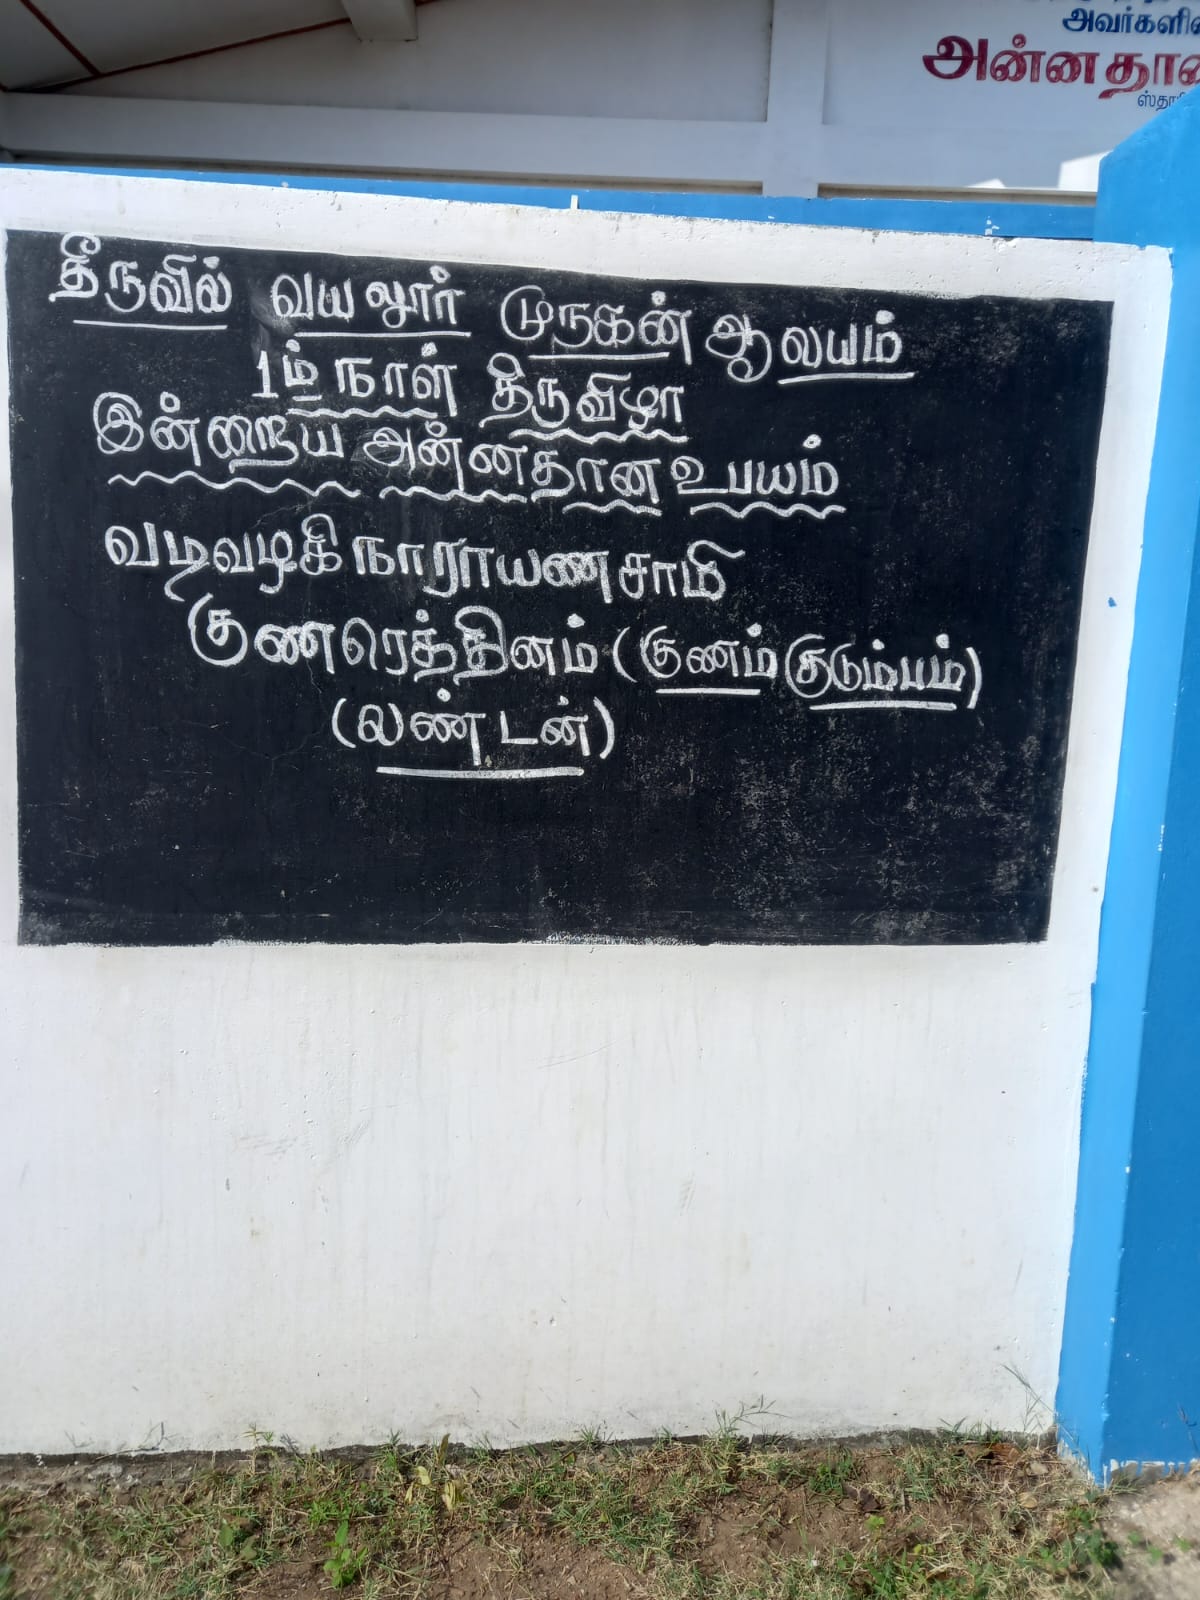 அவர்களின்
அன்னதான
ஸ்தா
திருவில் வயலூர் முருகன் ஆலயம்
1ம் நாள் திருவிழா
இன்றைய அன்னதான உபயம்
வடிவழகி நாராயணசாமி
குணரெத்தினம் (குணம் குடும்பம்)
(லண்டன்)